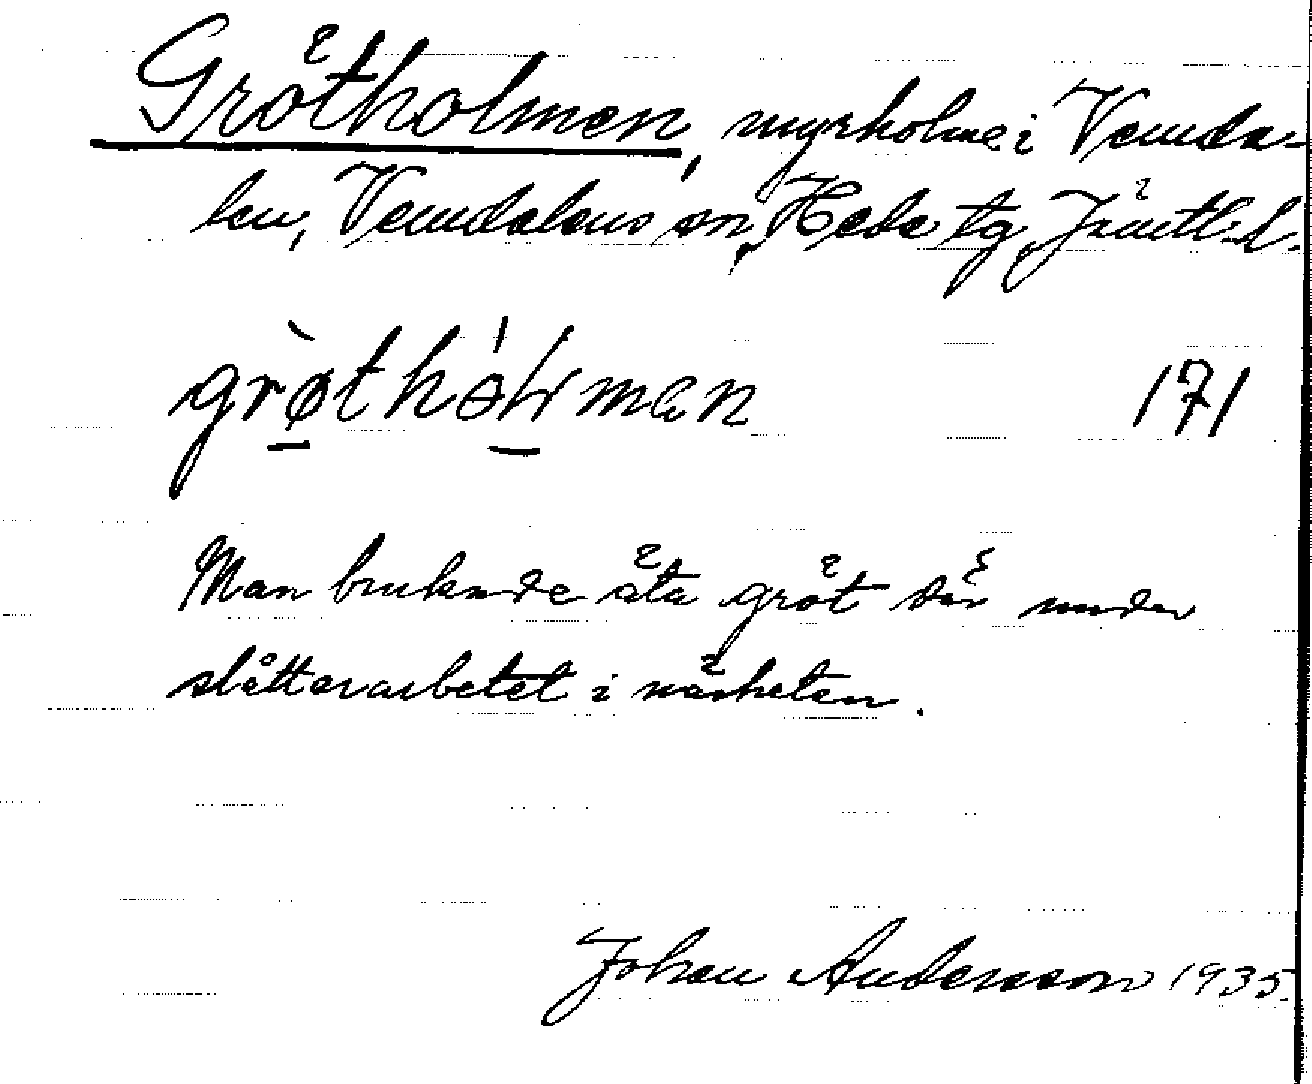 Grötholmen, myrholme i Vemda-
len, Vemdalens sn, Hede tg, Jämtl. l.
grøthólmen 171
Man brukade äta gröt där under
slåtterarbetet i närheten.
Johan Andersson 1935